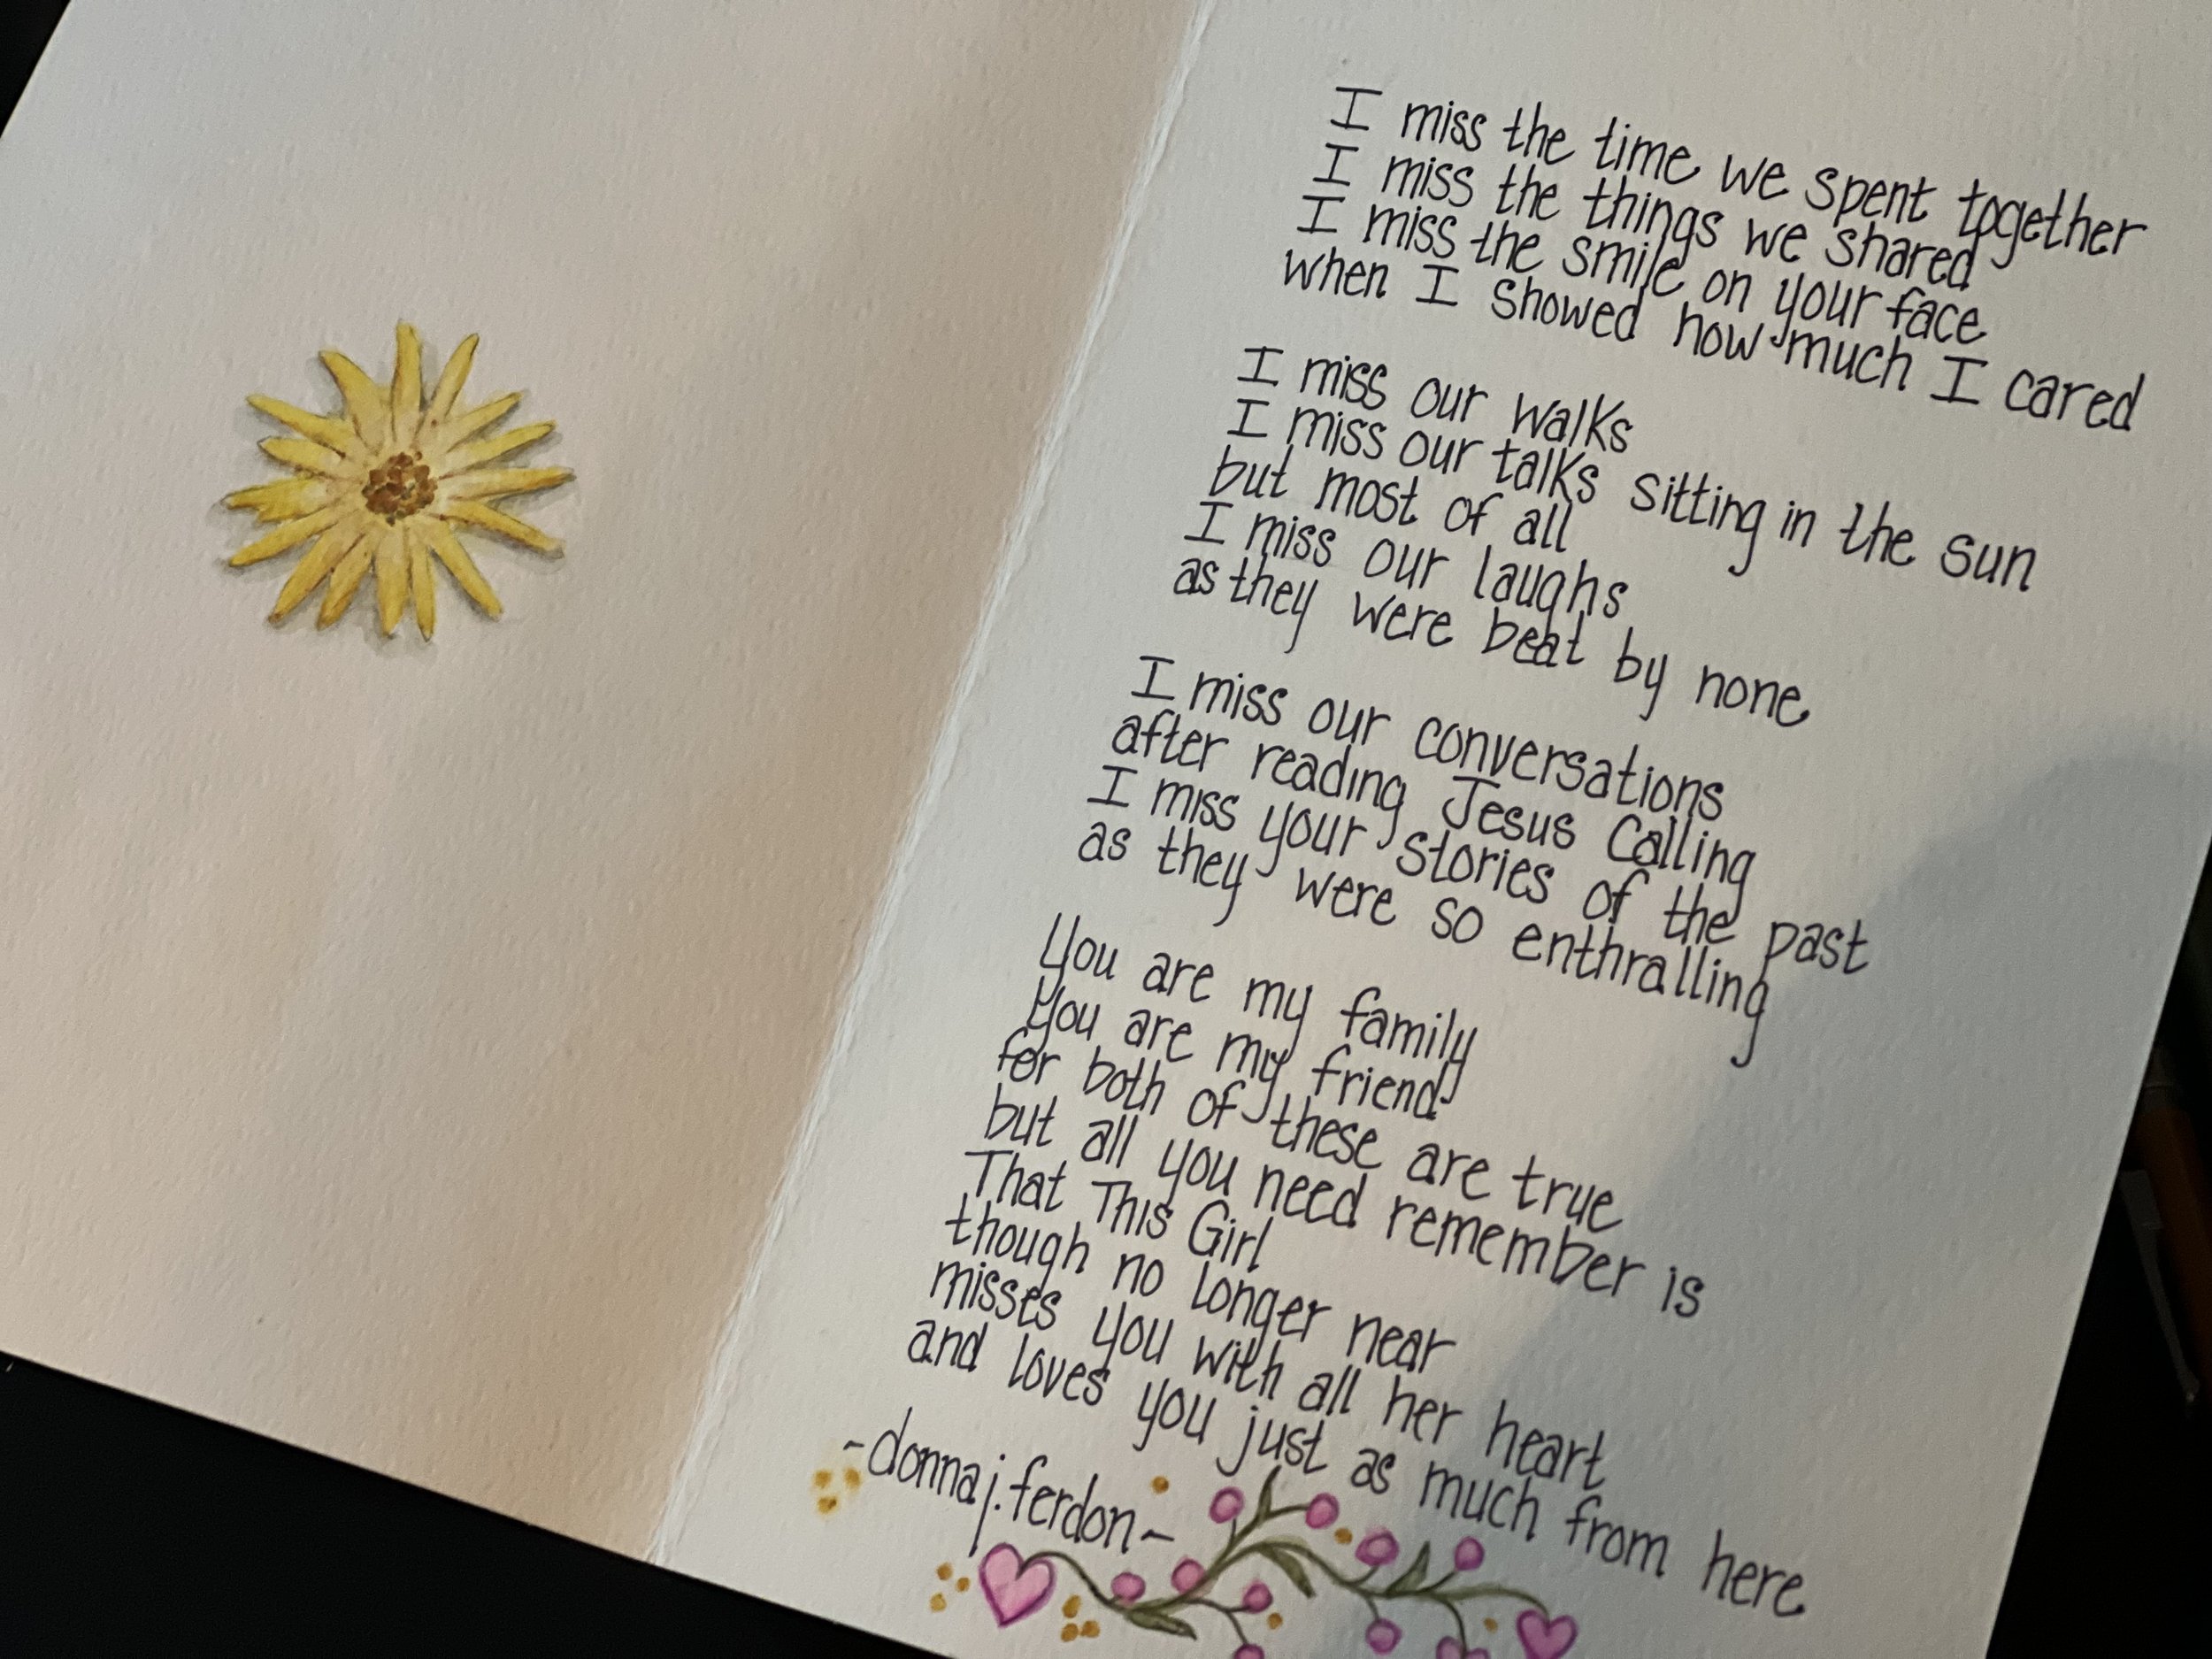 I miss the time we spent together
I miss the things we shared
I miss the smile on your face
when I showed how much I cared
I miss our walks
I miss our talks sitting in the sun
but most of all
I miss our laughs
as they were beat by none
I miss our conversations
after reading Jesus Calling
I miss your stories of the past
as they were so enthralling
You are my family
You are my friend
for both of these are true
but all you need remember is
That This Girl
though no longer near
misses you with all her heart
and loves you just as much from here
~donna j. ferdon~